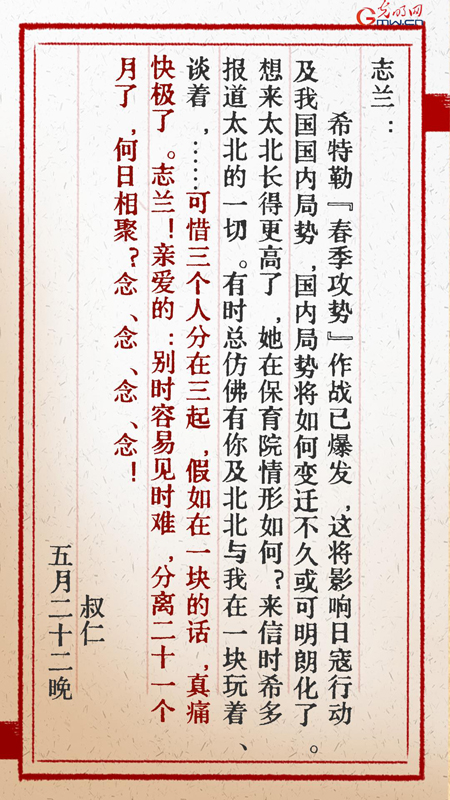 光明网
GMW.CN
志兰：
希特勒『春季攻势』作战已爆发，这将影响日寇行动
及我国国内局势，国内局势将如何变迁不久或可明朗化了。
想来太北长得更高了，她在保育院情形如何？来信时希多
报道太北的一切。有时总仿佛有你及北北与我在一块玩着、
谈着，……可惜三个人分在三起，假如在一块的话，真痛
快极了。志兰！亲爱的：别时容易见时难，分离二十一个
月了，何日相聚？念、念、念、念！
叔仁
五月二十二晚